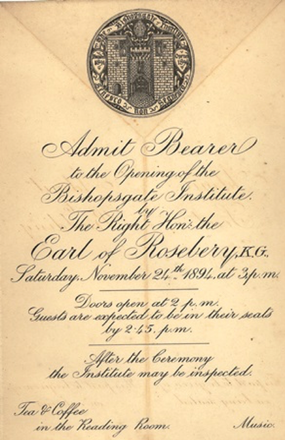 Admit Bearer
to the Opening of the
Bishopsgate Institute.
by
The Right Hon: the
Earl of Rosebery, K.G.,
Saturday, November 24th 1894, at 3 p.m.
Doors open at 2 p.m.
Guests are expected to be in their seats
by 2.45. p.m.
After the Ceremony
the Institute may be inspected.
Tea & Coffee
in the Reading Room.
Music.